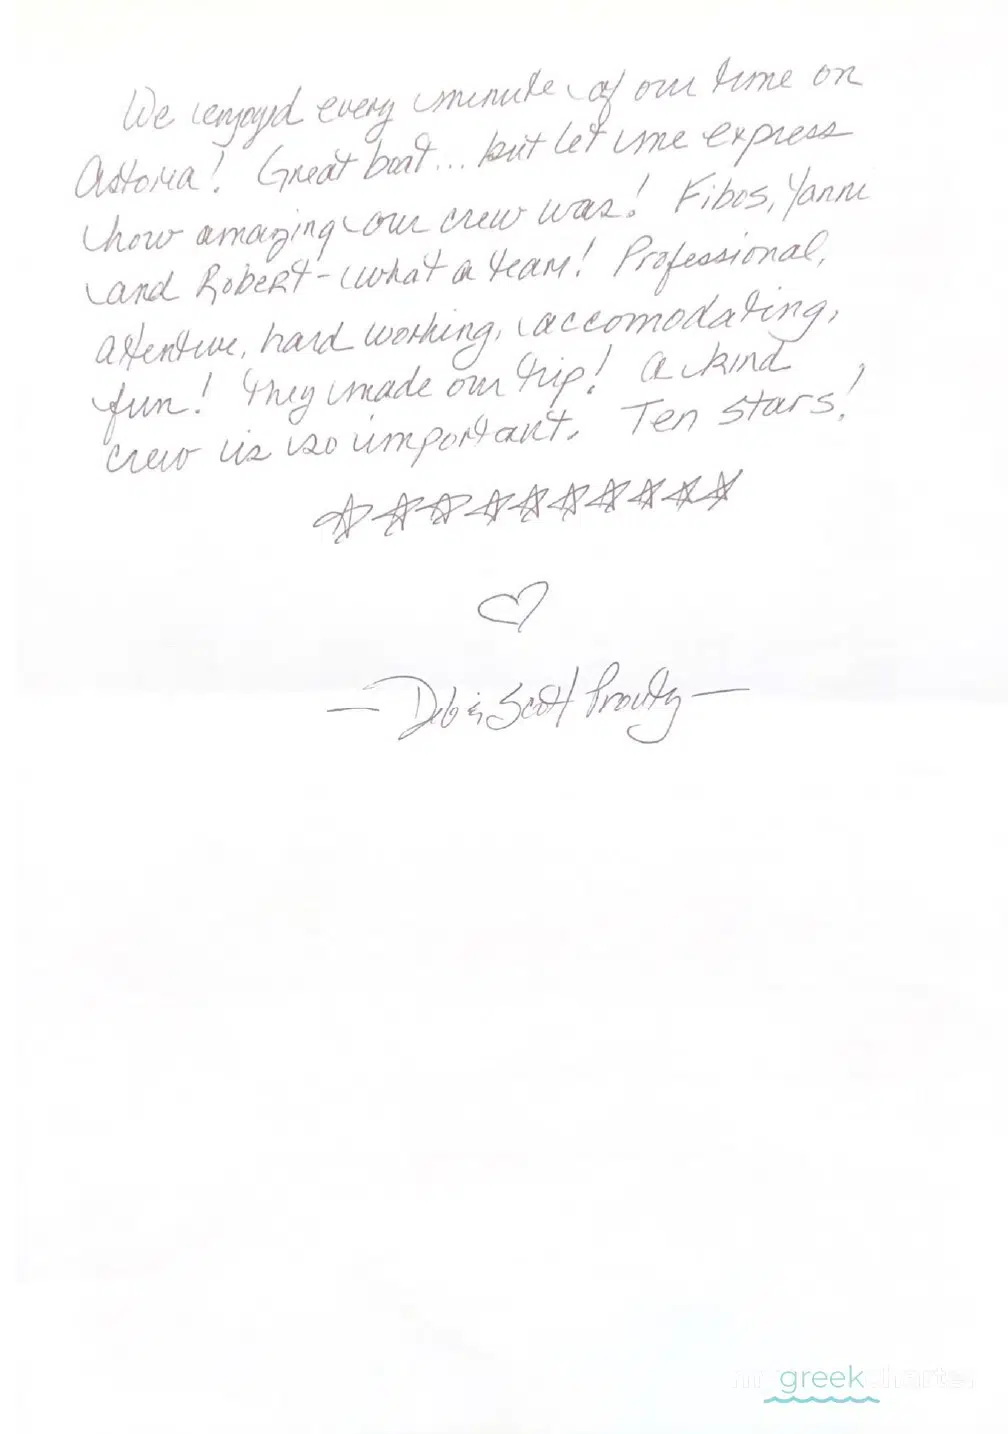 We enjoyd every minute of our time on
Astoria! Great boat... but let me express
how amazing our crew was! Fibos, Yanni
and Robert - what a team! Professional,
attentive, hard working, accomodating,
fun! They made our trip! A kind
crew is so important. Ten stars!
☆☆☆☆☆☆☆☆☆☆
♡
— Deb & Scott Prouty —
my greek charter